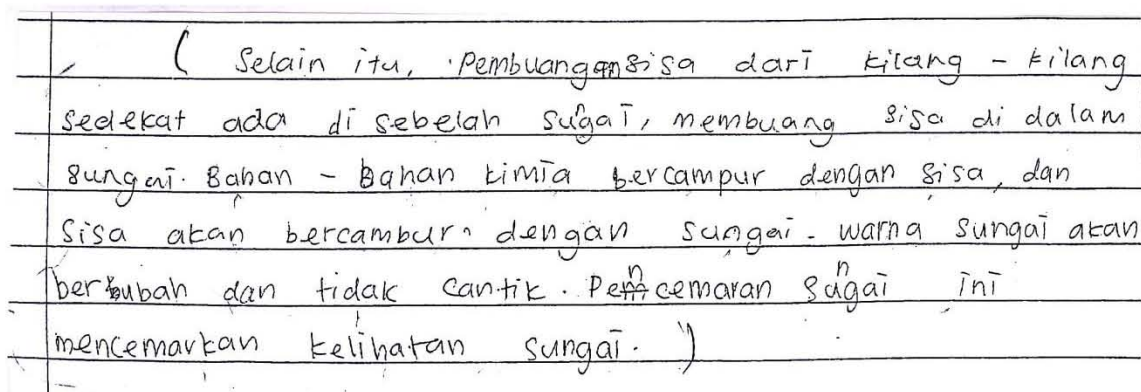 ( Selain itu, Pembuangan sisa dari kilang - kilang
sedekat ada di sebelah sungai, membuang sisa di dalam
sungai. Bahan - Bahan kimia bercampur dengan sisa, dan
Sisa akan bercambur dengan sungai. warna sungai akan
berubah dan tidak cantik. Pencemaran sungai ini
mencemarkan kelihatan sungai. )